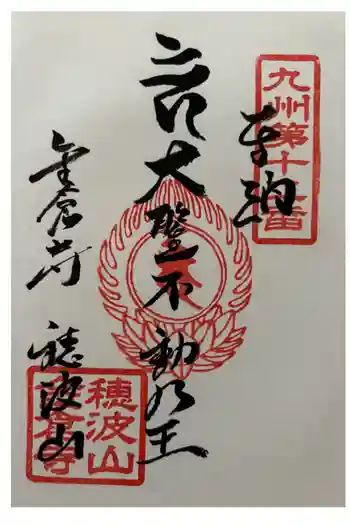 九州第十番
奉納
大聖不動明王
穂波山
金倉寺
穂波山
倉寺